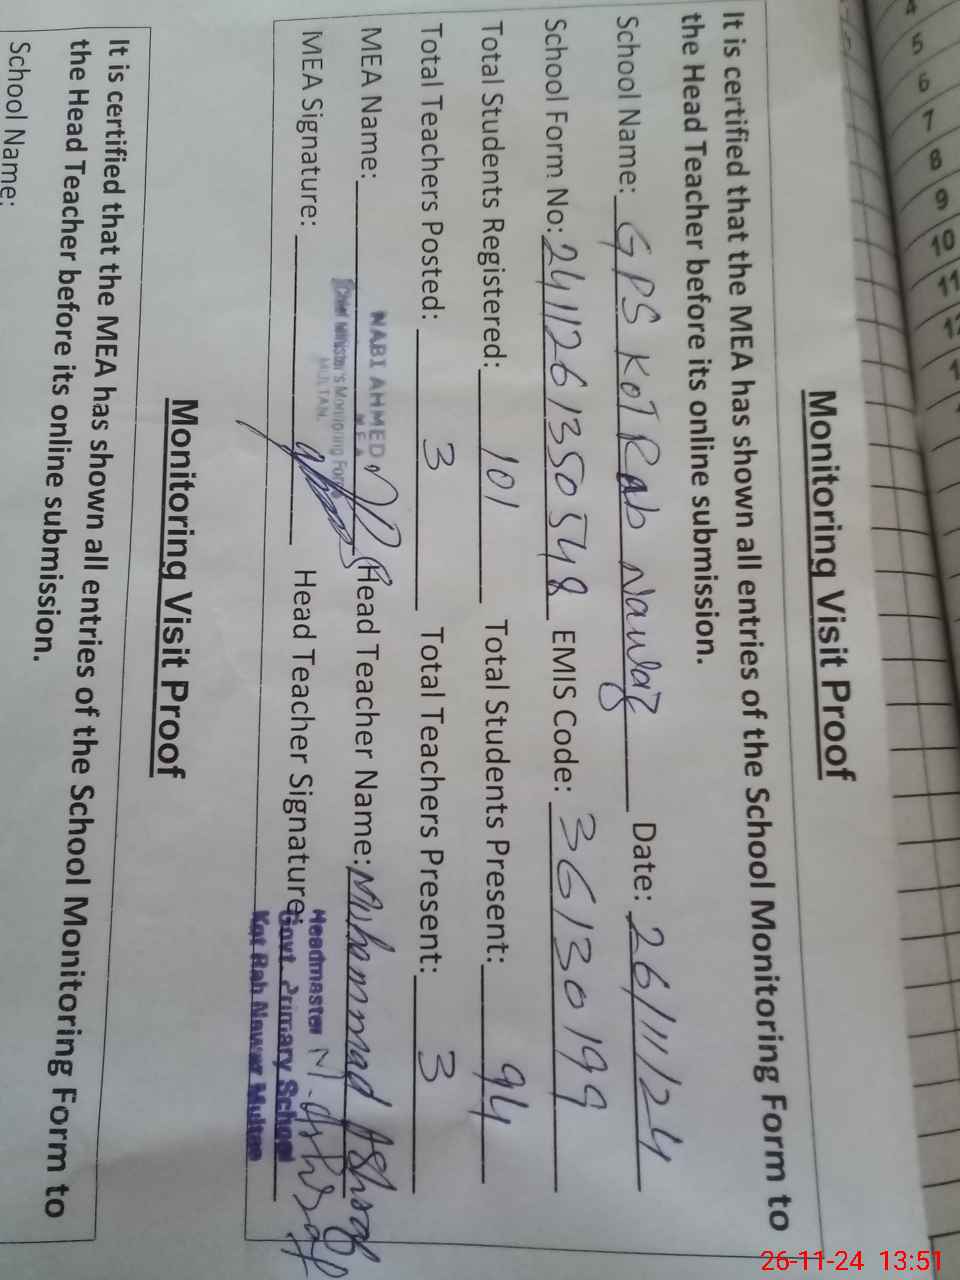 Monitoring Visit Proof
It is certified that the MEA has shown all entries of the School Monitoring Form to
the Head Teacher before its online submission.
School Name: GPS Kot Rab Nawaz Date: 26/11/24
School Form No: 2411261350548 EMIS Code: 36130199
Total Students Registered: 101 Total Students Present: 94
Total Teachers Posted: 3 Total Teachers Present: 3
MEA Name: NABI AHMED Head Teacher Name: Muhammad Ashraf
MEA
Chief Minister's Monitoring Force
MULTAN.
MEA Signature: Head Teacher Signature: M. Ashraf
Headmaster
Govt. Primary School
Kot Rab Nawaz Multan
Monitoring Visit Proof
It is certified that the MEA has shown all entries of the School Monitoring Form to
the Head Teacher before its online submission.
School Name:
4
5
6
7
8
9
10
11
26-11-24 13:51